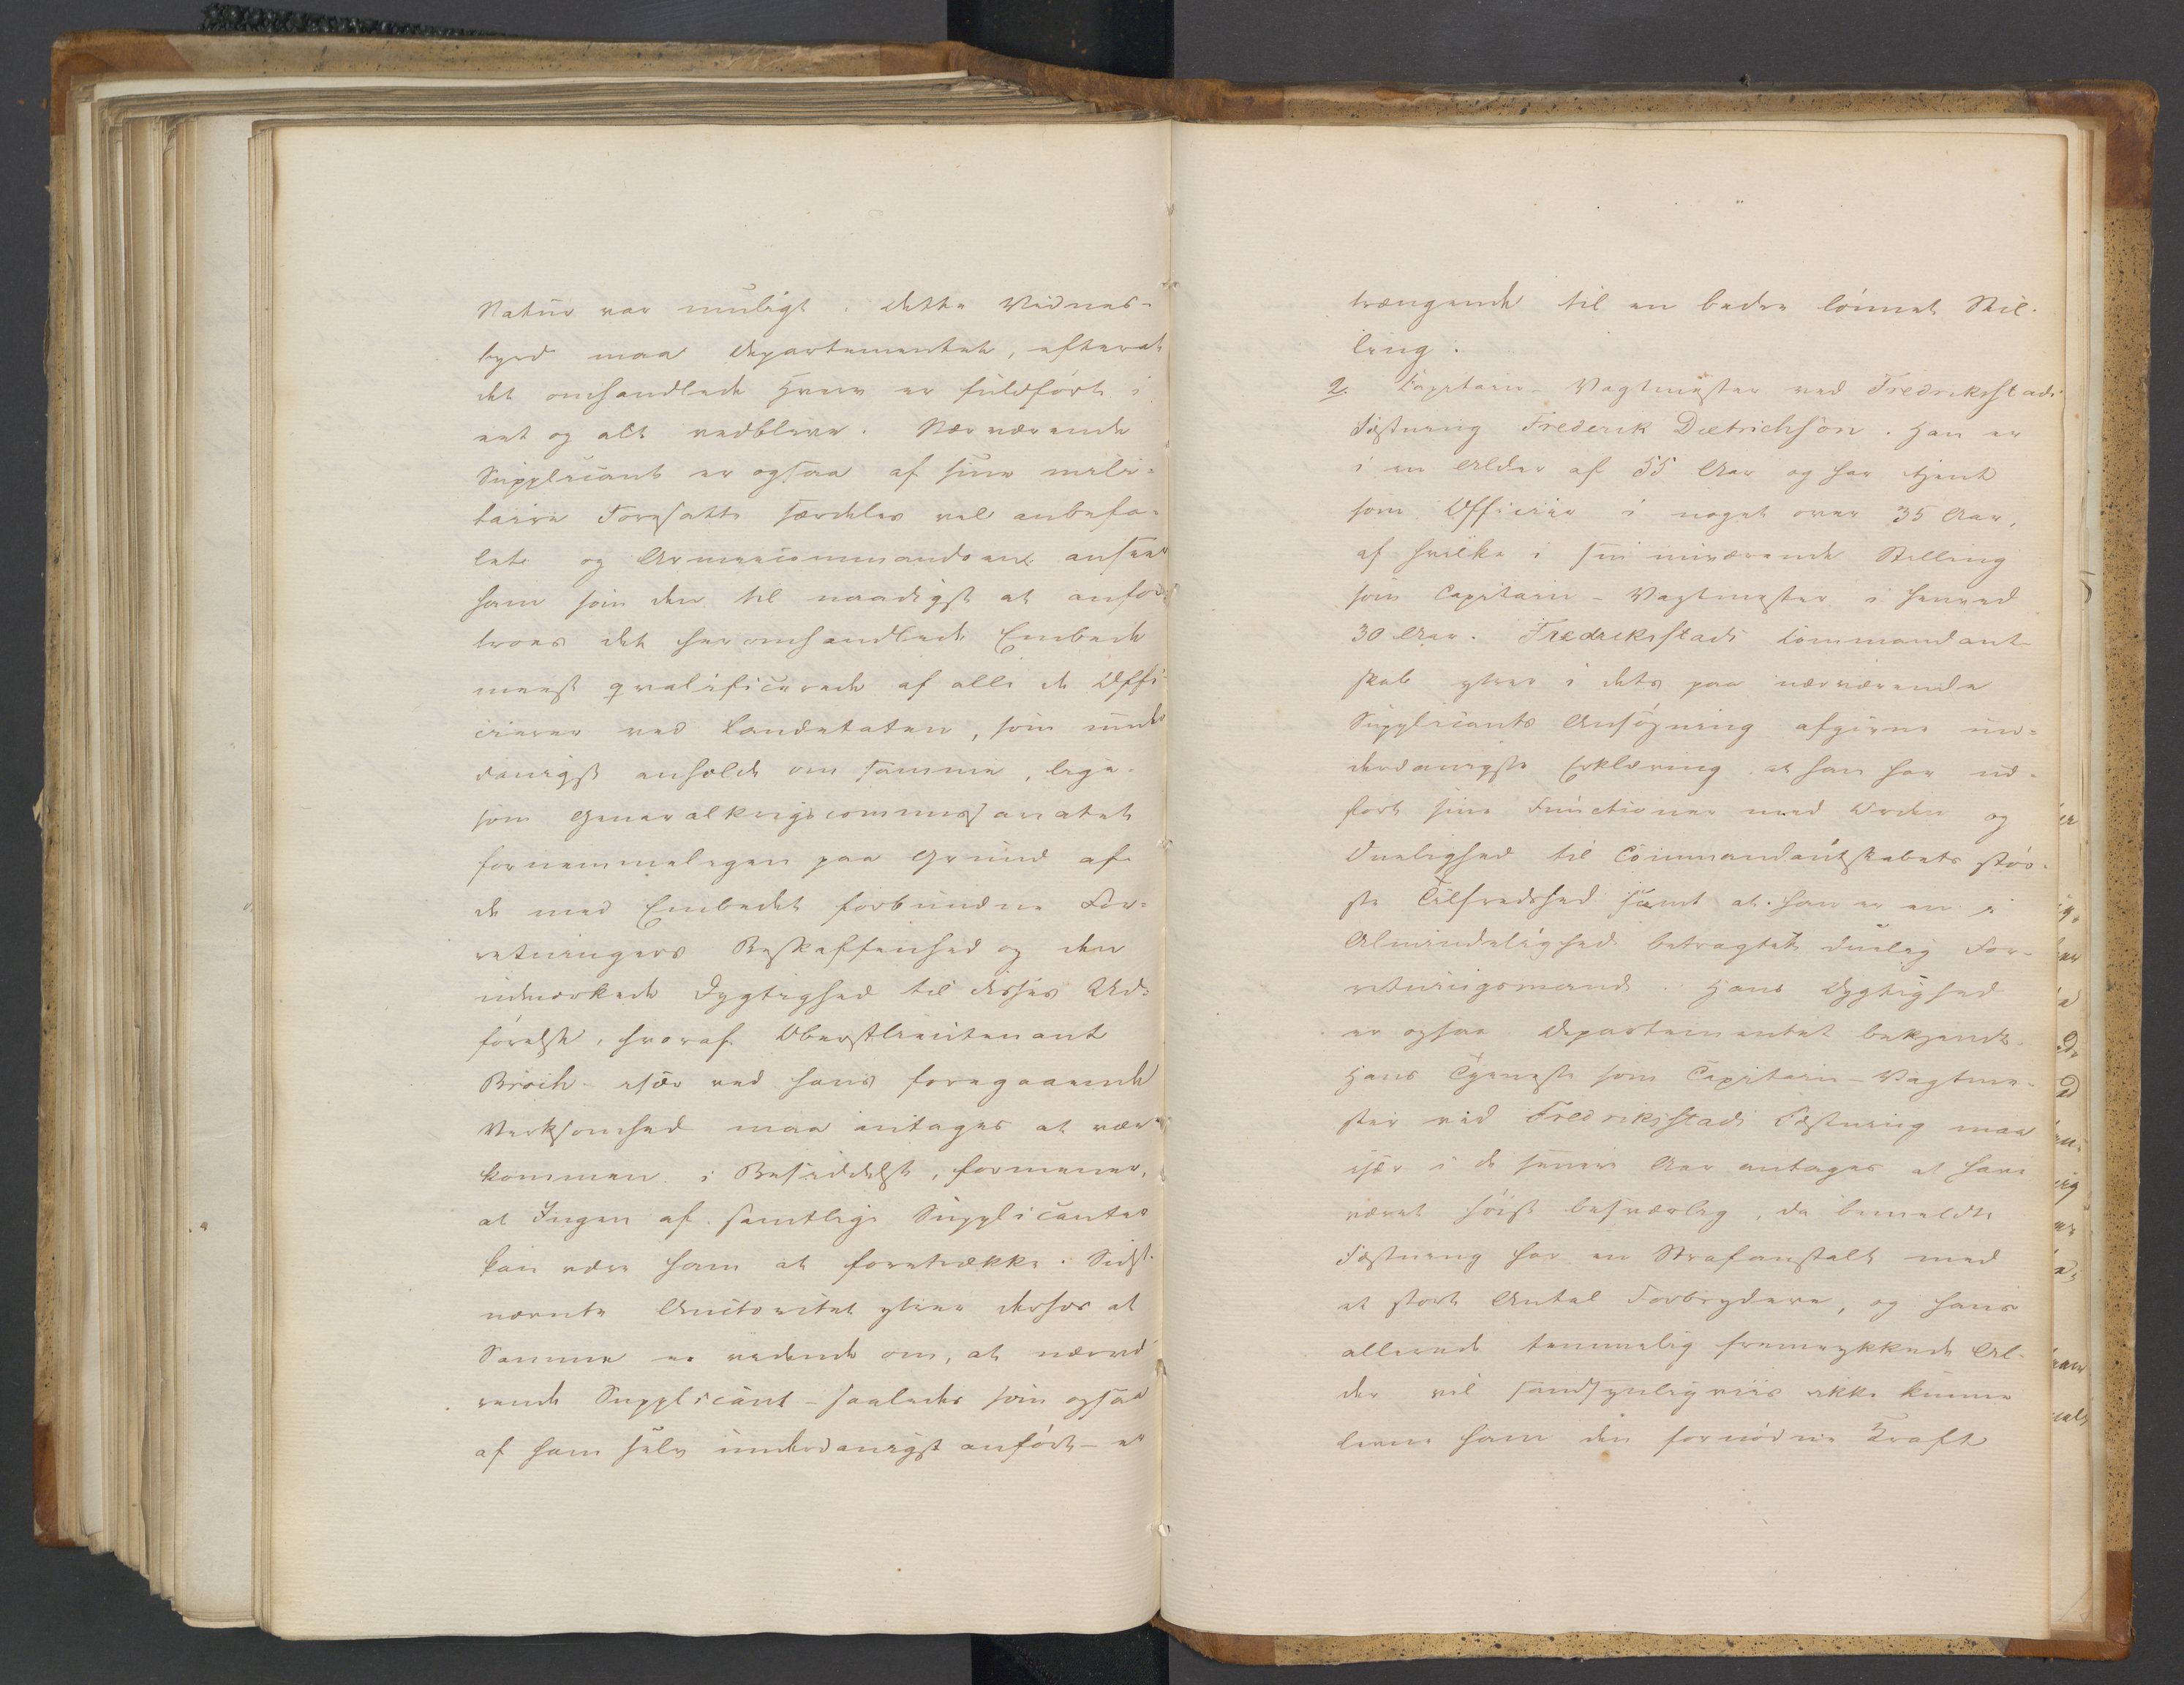 Natur var muligt. Dette Vidnes-
byrd maa Departementet, efterat
det omhandlede Hverv er fuldført i
eet og alt vedblive. Nærværende
Supplicant er ogsaa af sine mili-
taire Foresatte særdeles vel anbefa-
let og Armeecommandoen anseer
ham som den til naadigst at anfor-
troes det heromhandlede Embede
meest qvalificerede af alle de Offi-
cierer ved Landetaten, som under-
danigst anholdt om samme, lige-
som Generalkrigscommissariatet
fornemmeligen paa Grund af
de med Embedet forbundne For-
retningers Beskaffenhed og den
udmærkede Dygtighed til disses Ud-
førelse, hvoraf Oberstlieutenant
Broch især ved hans foregaaende
Virksomhed maa antages at være
kommen i Besiddelse, formener,
at Ingen af samtlige Supplicanter
kan være ham at foretrække. Sidst-
nævnte Autoritet ytrer derhos at
Samme er vidende om, at nærvæ-
rende Supplicant - saaledes som ogsaa
af ham selv underdanigst anført - er
trængende til en bedre lønnet Stil-
ling.
2. Capitain-Vagtmester ved Fredriksstads
Fæstning Frederik Dietrichson. Han er
i en Alder af 55 Aar og har tjent
som Officier i noget over 35 Aar,
af hvilke i sin nuværende Stilling
som Capitain-Vagtmester i henved
30 Aar. Fredriksstads Commandant-
skab ytrer i dets paa nærværende
Supplicants Ansøgning afgivne un-
derdanigste Erklæring at han har ud-
ført sine Functioner med Orden og
Duelighed til Commandantskabets stør-
ste Tilfredshed samt at han er en i
Almindelighed betragtet duelig For-
retningsmand. Hans Dygtighed
er ogsaa Departementet bekjendt.
Hans Tjeneste som Capitain-Vagtme-
ster ved Fredriksstads Fæstning maa
især i de senere Aar antages at have
været høist besværlig, da bemeldte
Fæstning har en Strafanstalt med
et stort Antal Forbrydere, og hans
allerede temmelig fremrykkede Al-
der vil sandsynligviis ikke kunne
levne ham den fornødne Kraft